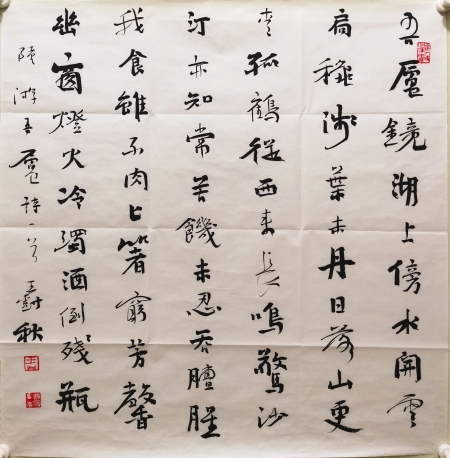 吾廬鏡湖上傍水開雲
扃穐淺葉未丹日落山更
青孤鶴從西來長鳴驚沙
汀亦知常苦饑未忍吞膻腥
我食雖不肉匕箸窮芳馨
幽窗燈火冷濁酒倒殘瓶
陸游吾廬詩一首 王 秋